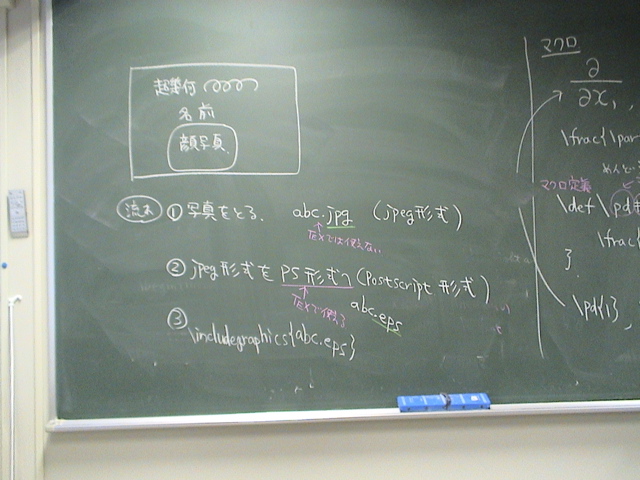 名前
顔写真
流れ ① 写真をとる. abc.jpg (jpeg形式)
TeXでは使えない
② jpeg形式を PS形式へ (Postscript 形式)
TeXで使える
abc.eps
③ \includegraphics{abc.eps}
マクロ
∂
∂x₁,
\frac{\par
めんど
マクロ定義
\def \pd#
\frac{
}.
\pd{1},